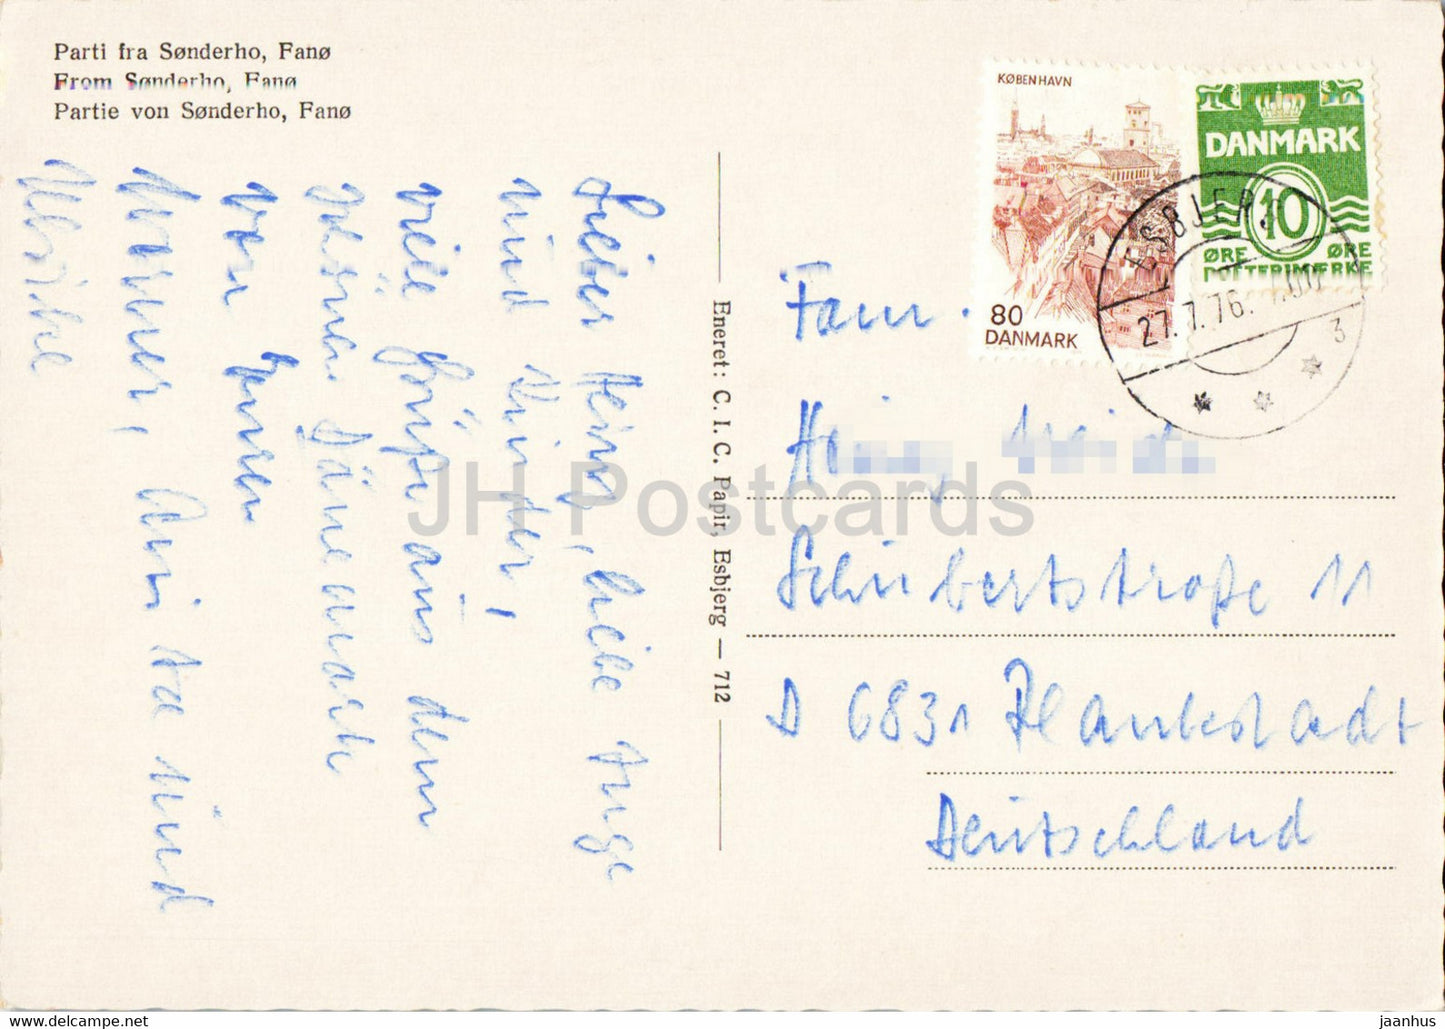 Parti fra Sønderho, Fanø
From Sønderho, Fanø
Partie von Sønderho, Fanø
KØBENHAVN
80
DANMARK
DANMARK
10
ØRE ØRE
ESBJERG
27.7.76.
3
Lieber Heinz, liebe Inge
und Kinder,
viele Grüße aus dem
schönen Dänemark
von Euren
Werner, Anita und
Ulrike
Eneret: C. I. C. Papir, Esbjerg — 712
Fam.
Schubertstraße 11
D 6831 Plankstadt
Deutschland
JH Postcards
www.delcampe.net
jaanhus